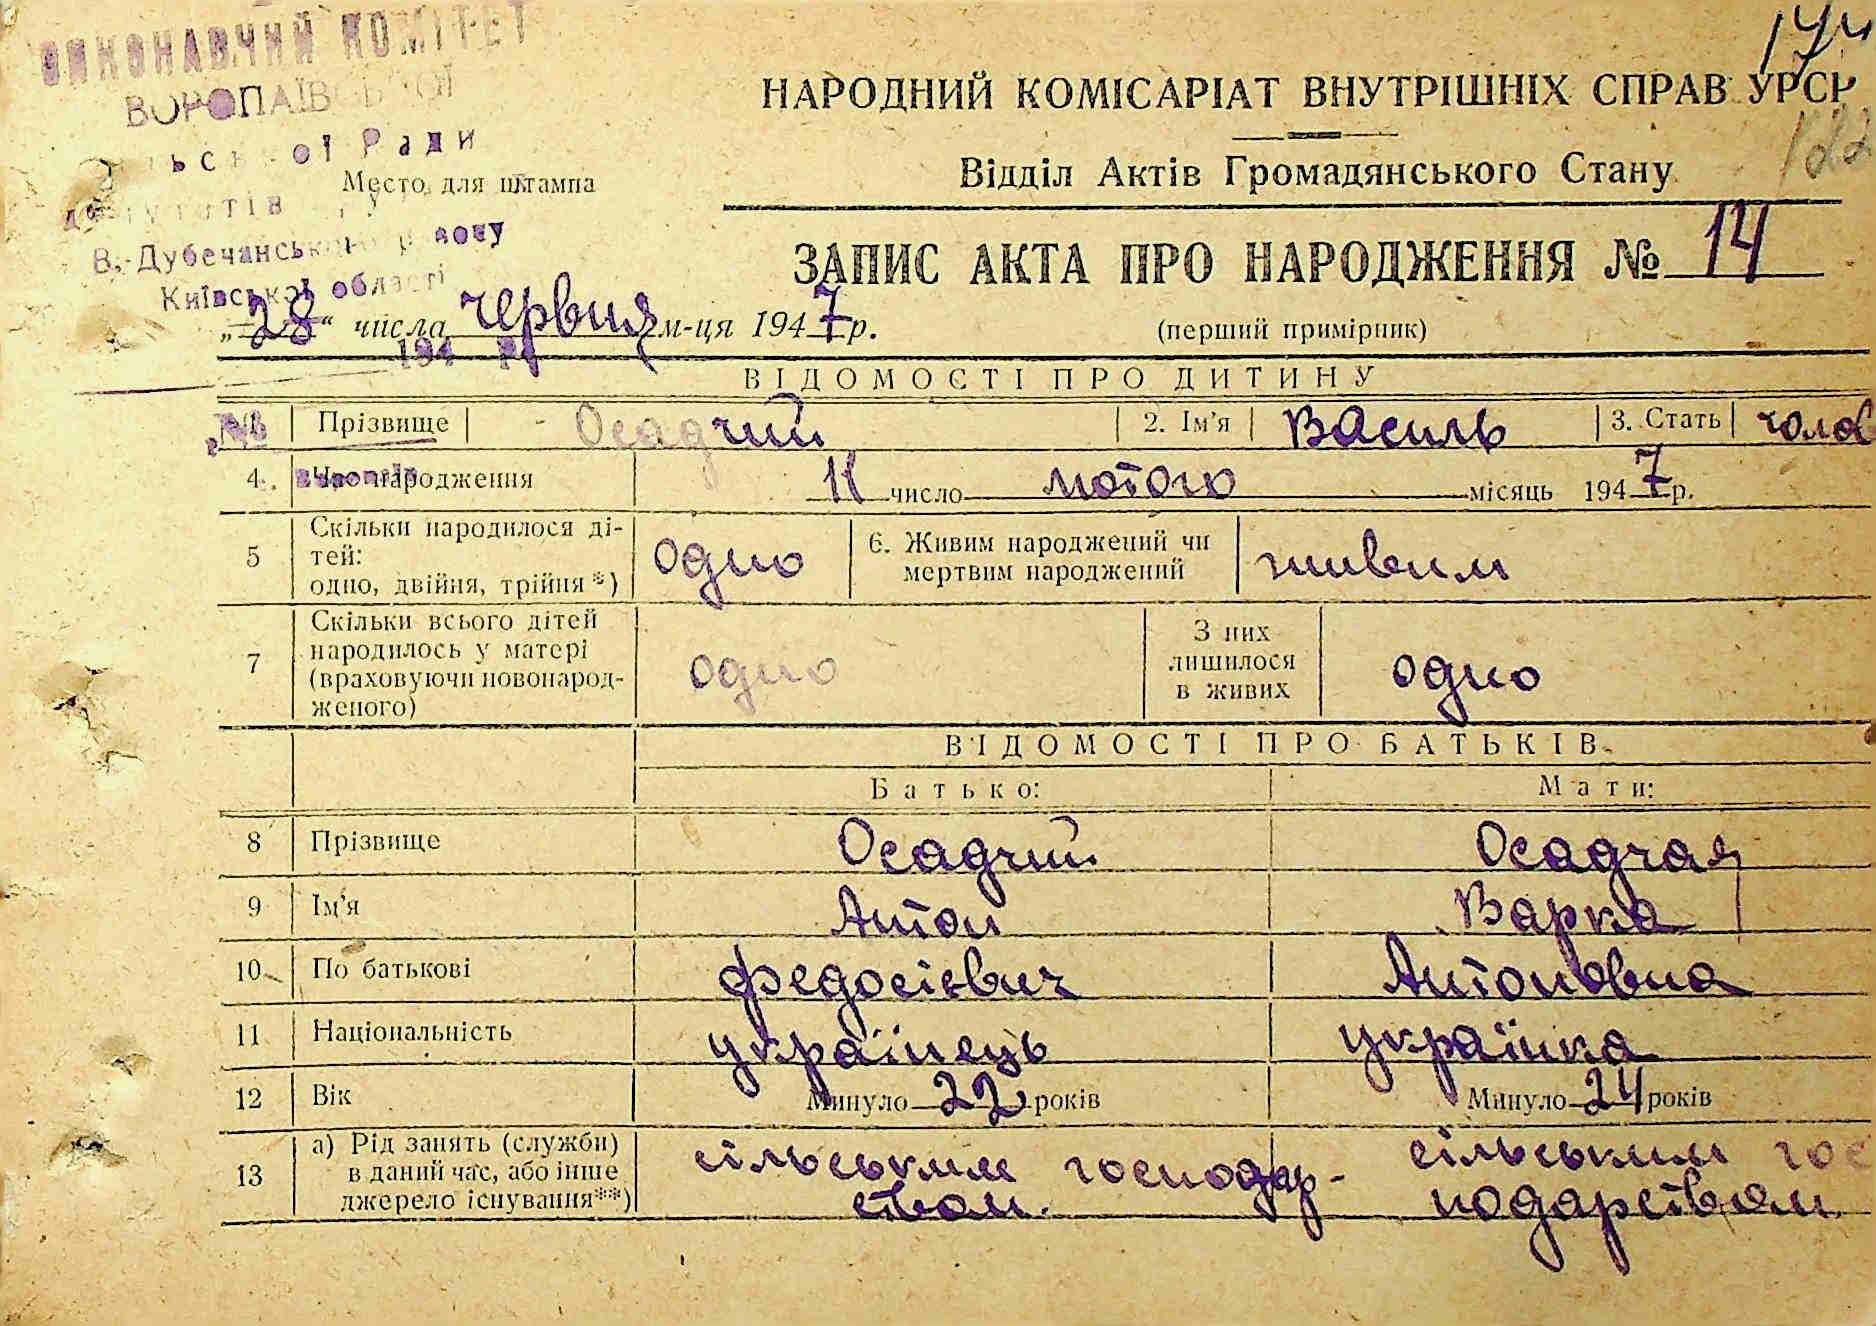 ВИКОНАВЧИЙ КОМІТЕТ
ВОРОПАЇВСЬКОЇ
ої Ради
Место для штампа
депутатів
В.-Дубечанського району
Київської області
194 р.
174
122
НАРОДНИЙ КОМІСАРІАТ ВНУТРІШНІХ СПРАВ УРСР
Відділ Актів Громадянського Стану
ЗАПИС АКТА ПРО НАРОДЖЕННЯ № 14
„28“ числа червня м-ця 1947 р.
(перший примірник)
ВІДОМОСТІ ПРО ДИТИНУ
1 Прізвище Осадчий 2. Ім'я Василь 3. Стать чолов
4. Час народження 11 число лютого місяць 1947 р.
5 Скільки народилося ді-
тей:
одно, двійня, трійня*) одно 6. Живим народжений чи
мертвим народжений живим
7 Скільки всього дітей
народилось у матері
(враховуючи новонарод-
женого) одно З них
лишилося
в живих одно
ВІДОМОСТІ ПРО БАТЬКІВ
Батько: Мати:
8 Прізвище Осадчий Осадчая
9 Ім'я Антон Варка
10 По батькові Федосієвич Антоновна
11 Національність українець українка
12 Вік Минуло 22 років Минуло 24 років
13 а) Рід занять (служби)
в даний час, або інше
джерело існування**) сільським господар-
ством. сільським гос
подарством